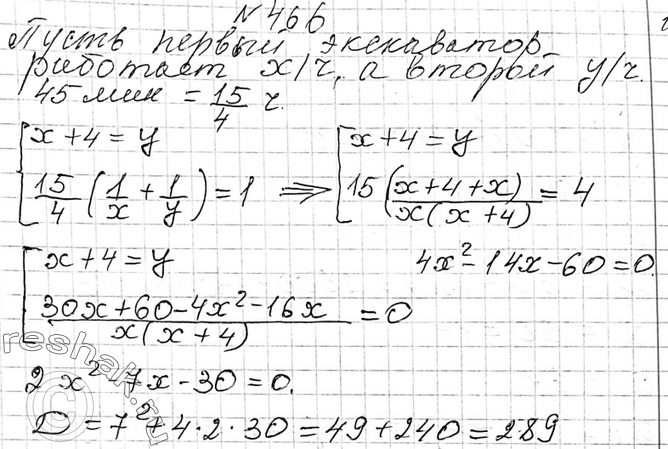 №466
Пусть первый экскаватор
работает x/ч, а второй y/ч.
45 мин = 15/4 ч.
[ x + 4 = y
15/4 (1/x + 1/y) = 1 ⟹ [ x + 4 = y
15 (x + 4 + x) / x(x + 4) = 4
[ x + 4 = y
(30x + 60 - 4x² - 16x) / x(x + 4) = 0
4x² - 14x - 60 = 0.
2x² - 7x - 30 = 0.
D = 7² + 4·2·30 = 49 + 240 = 289
reshak.ru